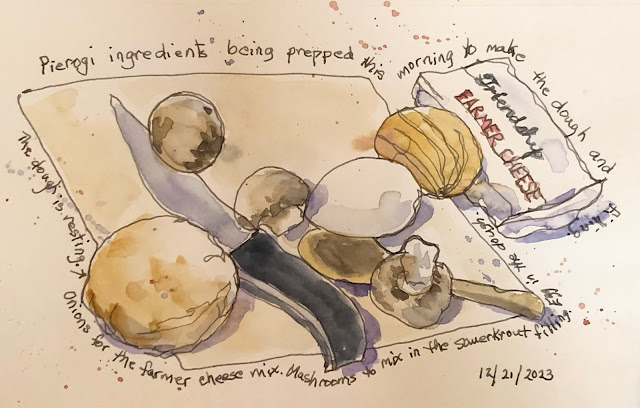 Pierogi ingredients being prepped this morning to make the dough and filling
Friendship
FARMER CHEESE
Egg in the dough
The dough is resting. → Onions for the farmer cheese mix. Mushrooms to mix in the sauerkrout filling.
12/21/2023